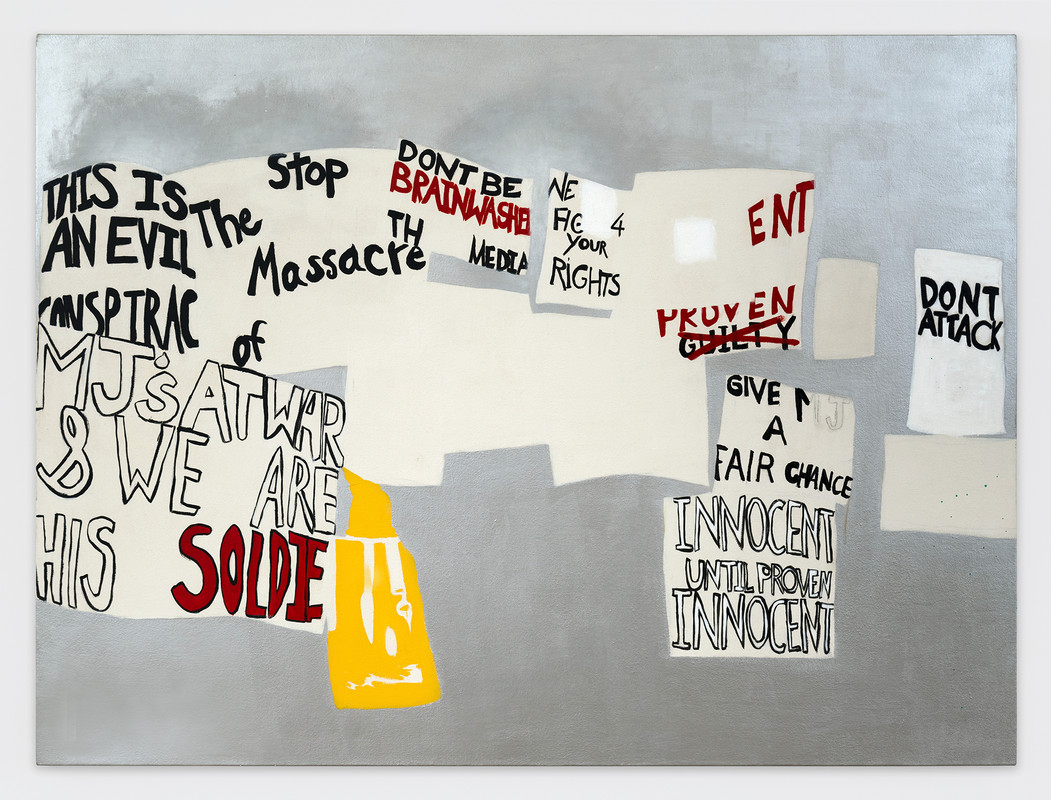 THIS IS
AN EVIL
CONSPIRAC
Stop
The
Massacre
of
DONT BE
BRAINWASHE
TH
MEDIA
WE
FIG 4
YOUR
RIGHTS
ENT
PROVEN
GUILTY
DONT
ATTACK
GIVE MJ
A
FAIR CHANCE
MJ's AT WAR
& WE ARE
HIS SOLDIE
INNOCENT
UNTIL PROVEN
INNOCENT